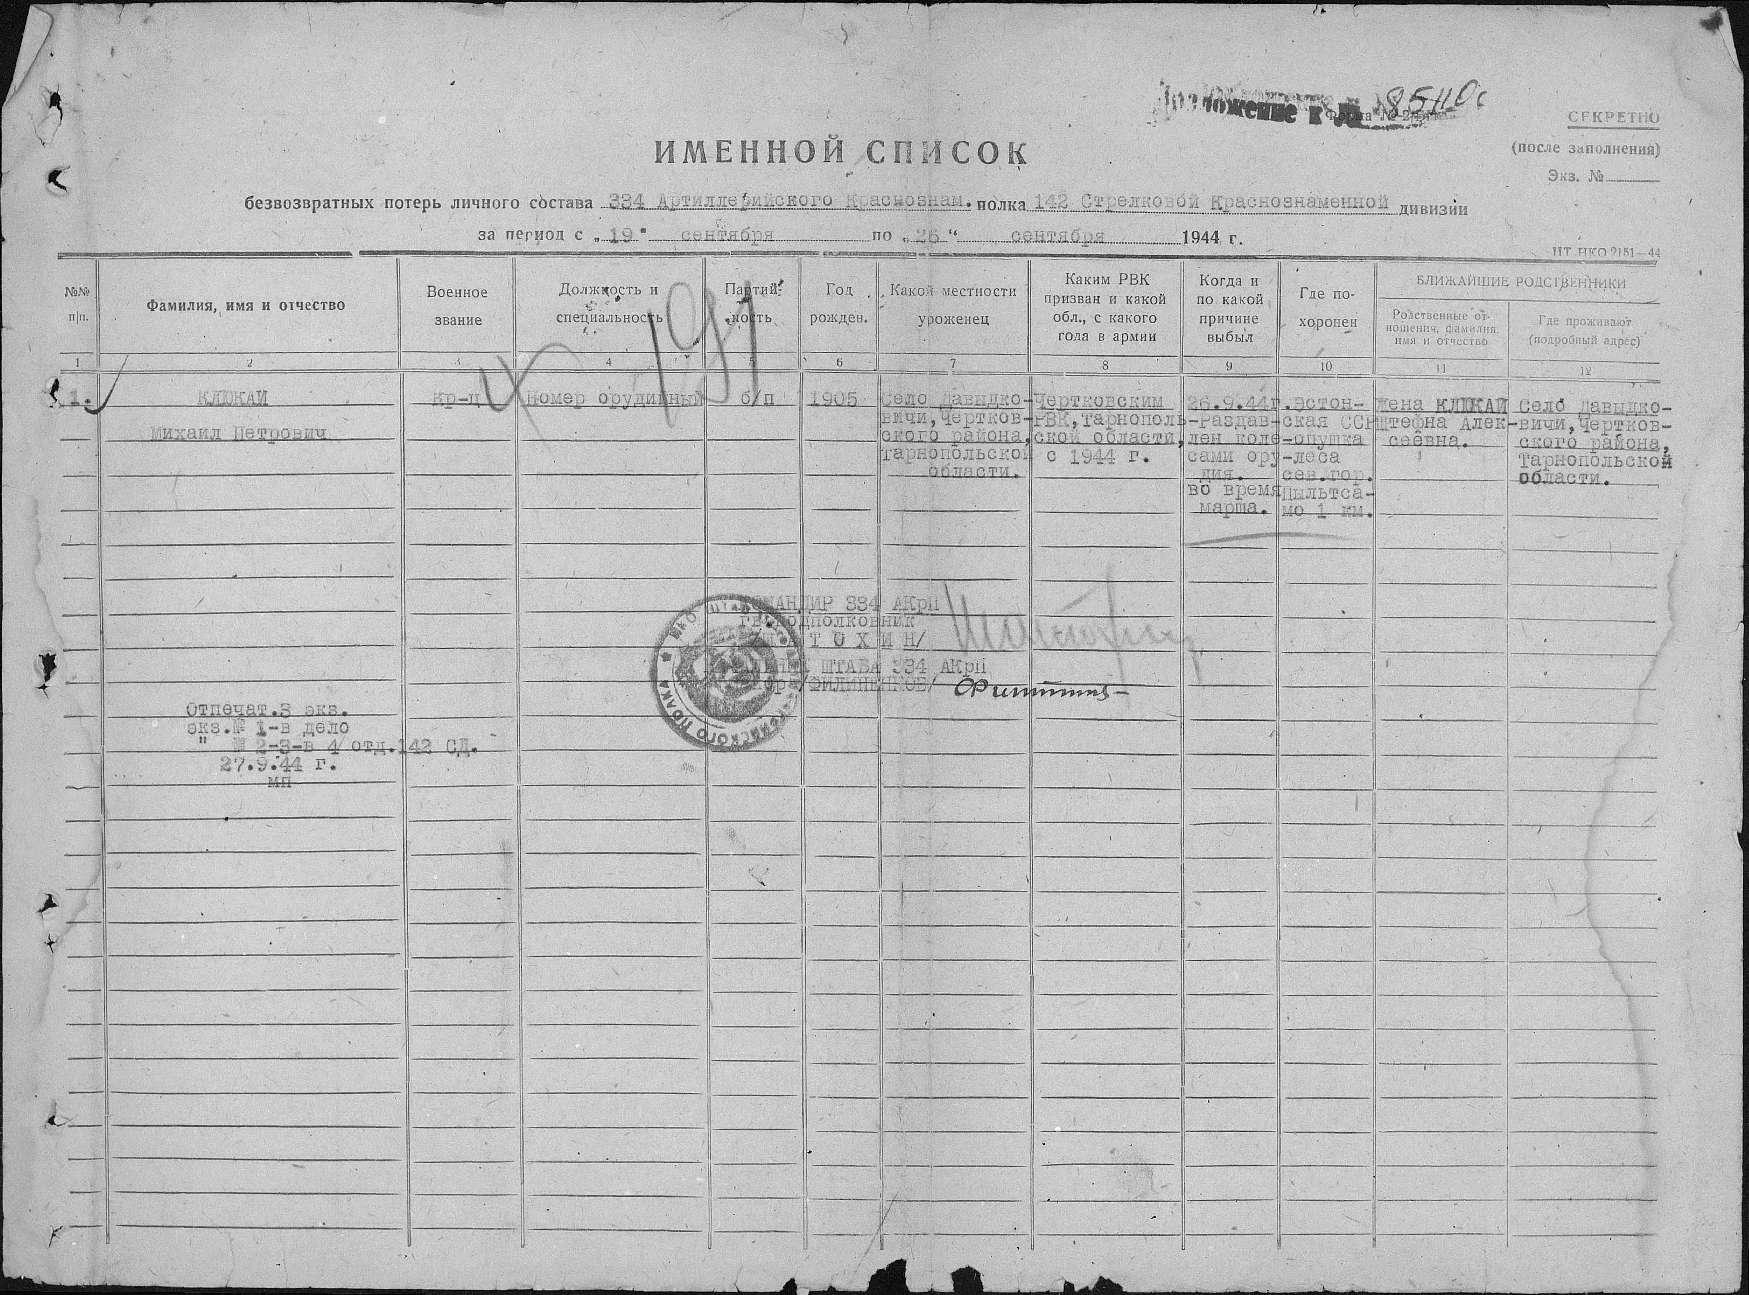 Приложение к № 8511с
Форма № 2
СЕКРЕТНО
(после заполнения)
Экз. №
ИМЕННОЙ СПИСОК
безвозвратных потерь личного состава 334 Артиллерийского Краснознам. полка 142 Стрелковой Краснознаменной дивизии
за период с „19" сентября по „26" сентября 1944 г.
НТ НКО 2151—44
№№ п|п.
Фамилия, имя и отчество
Военное звание
Должность и специальность
Партий- ность
Год рожден.
Какой местности уроженец
Каким РВК призван и какой обл., с какого года в армии
Когда и по какой причине выбыл
Где по- хоронен
БЛИЖАЙШИЕ РОДСТВЕННИКИ
Родственные от- ношения, фамилия, имя и отчество
Где проживают (подробный адрес)
1 2 3 4 5 6 7 8 9 10 11 12
191
1.
КЛЮКАЙ
Михаил Петрович
Кр-ц
Номер орудийный
б/п
1905
Село Давыдко-
вичи, Чертков-
ского района,
Тарнопольской
области.
Чертковским
РВК, Тарнополь-
ской области,
с 1944 г.
26.9.44г.
-Раздав-
лен коле-
сами ору-
дия.
во время
марша.
Эстон-
ская ССР
-опушка
-леса
сев.гор.
Пыльтса-
мо 1 км.
Жена КЛЮКАЙ
Штефна Алек-
сеевна.
Село Давыдко-
вичи, Чертков-
ского района,
Тарнопольской
области.
КОМАНДИР 334 АКрП
гв.подполковник
ТОХИН/
ШТАБА 334 АКрП
/ФИЛИПЕНКОВ/
Отпечат.3 экз.
экз.№ 1-в дело
" № 2-3-в 4 отд.142 СД.
27.9.44 г.
мп